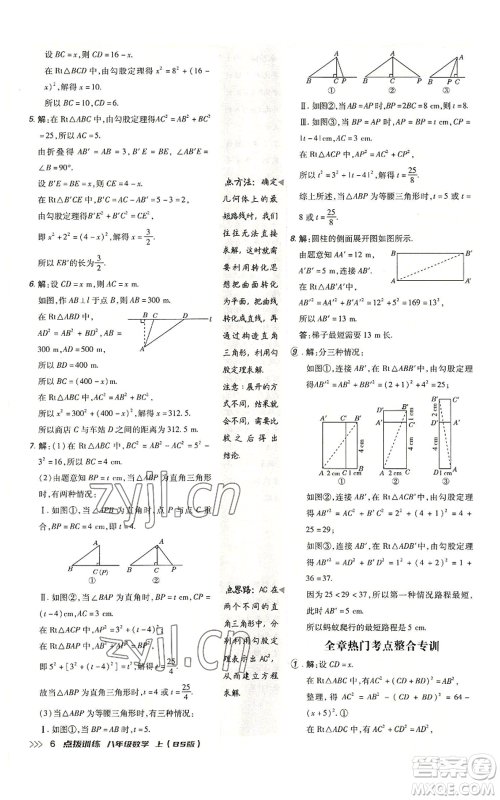 设 BC=x,则 CD=16-x.
在 Rt△BCD 中,由勾股定理得 x²=8²+(16-x)²,解得 x=10.
所以 BC=10,CD=6.
5.解:在 Rt△ABC 中,由勾股定理得 AC²=AB²+BC²
=25,所以 AC=5.
由折叠得 AB′=AB=3,B′E=BE,
∠B′=90°.
设 B′E=BE=x,则 B′C=2,CE=4-x.
在 Rt△B′CE 中,
由勾股定理得 B′E²+B′C²=CE²,
即 x²+2²=(4-x)²,解得 x=3/2.
所以 EB′的长为3/2.
6.解:设 CD=x m,
如图,作 AB⊥l 于点 B,则 AB=300 m.
在 Rt△ABD 中,
AD²=AB²+BD²,AD=500 m,
所以 BD=400 m.
所以 BC=(400-x)m,AC=x m.
在 Rt△ABC 中,AC²=AB²+BC²,
所以 x²=300²+(400-x)²,解得 x=312.5.
所以商店 C 与车站 D 的距离为 312.5 m.
7.解:(1)在 Rt△ABC 中,BC²=AB²-AC²=5²-3²=16,
所以 BC=4 cm.
(2)由题意知 BP=t cm,当△ABP 为直角三角形时,有两种情况:
Ⅰ.如图①,当∠APB 为直角时,点 P 与点 C 重合,BP=BC=4 cm,即 t=4.
① ②
Ⅱ.如图②,当∠BAP 为直角时,BP=t cm,CP=(t-4)cm,AC=3 cm.
在 Rt△ACP 中,AP²=3²+(t-4)²,
在 Rt△BAP 中,AB²+AP²=BP²,
即 5²+[3²+(t-4)²]=t²,解得 t=25/4.
故当△ABP 为直角三角形时,t=4 或 t=25/4.
点方法:确定几何体上的最短路线时,往往无法直接求解,这时就需要利用转化思想把曲面转化为平面,再通过构造直角三角形,利用勾股定理求解.
注意:展开的方式不同得到的结果会不同,最后要找最短的一个.
点思路:AC 在两个不同的直角三角形中,分别利用勾股定理表示出 AC²,从而建立方程求解.
① ② ③
Ⅱ.如图②,当 AB=AP 时,BP=2BC=8 cm,t=8.
Ⅲ.如图③,当 BP=AP 时,AP=BP=t cm,CP=(4-t)cm,AC=3 cm.
在 Rt△ACP 中,AP²=AC²+CP²,
所以 t²=3²+(4-t)²,解得 t=25/8.
综上所述,当△ABP 为等腰三角形时,t=5 或 t=8 或 t=25/8.
8.解:圆柱的侧面展开图如图所示.
由题意知 AA′=12 m,
AB=5 m,∠A=90°,
所以 A′B²=AA′²+AB²=12²+5²=169=13²,
所以 A′B=13 m.
答:梯子最短需要 13 m 长.
9.解:分三种情况:
如图①,连接 AB′,在 Rt△ABB′中,由勾股定理得 AB′²=AB²+BB′²=(2+1)²+4²=25;
① ② ③
如图②,连接 AB′,在 Rt△ACB′中,由勾股定理得 AB′²=AC²+B′C²=2²+(4+1)²=4+25=29;
如图③,连接 AB′,在 Rt△ADB′中,由勾股定理得 AB′²=AD²+B′D²=1²+(2+4)²=1+36=37.
因为 25<29<37,所以最短路程应为如图①所示的情况,此时 AB′²=25,即 AB′=5 cm.
所以蚂蚁爬行的最短路程是 5 cm.
全章热门考点整合专训
1.解:设 CD=x.
在 Rt△ABC 中,有 AC²+(CD+BD)²=AB²,
整理,得 AC²=AB²-(CD+BD)²=64-(x+5)².①
在 Rt△ADC 中,有 AC²+CD²=AD²,
zyjl.cn
>>> 6 点拨训练 八年级数学 上(BS版)